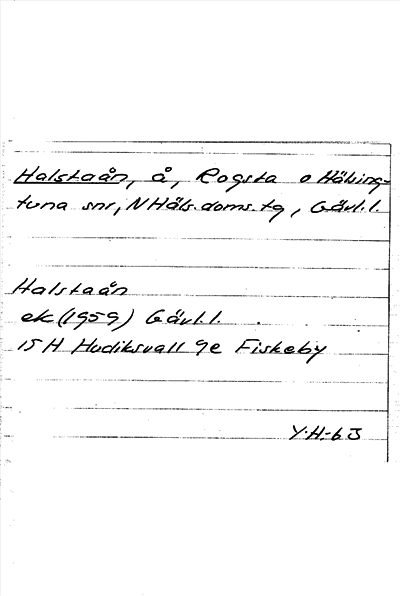 Halstaån, å, Rogsta o Hälsing-
tuna snr, N Häls. doms. tg, Gävl.l.
Halstaån
ek (1959) Gävl.l.
15 H Hudiksvall 9e Fiskeby
Y.H.-63